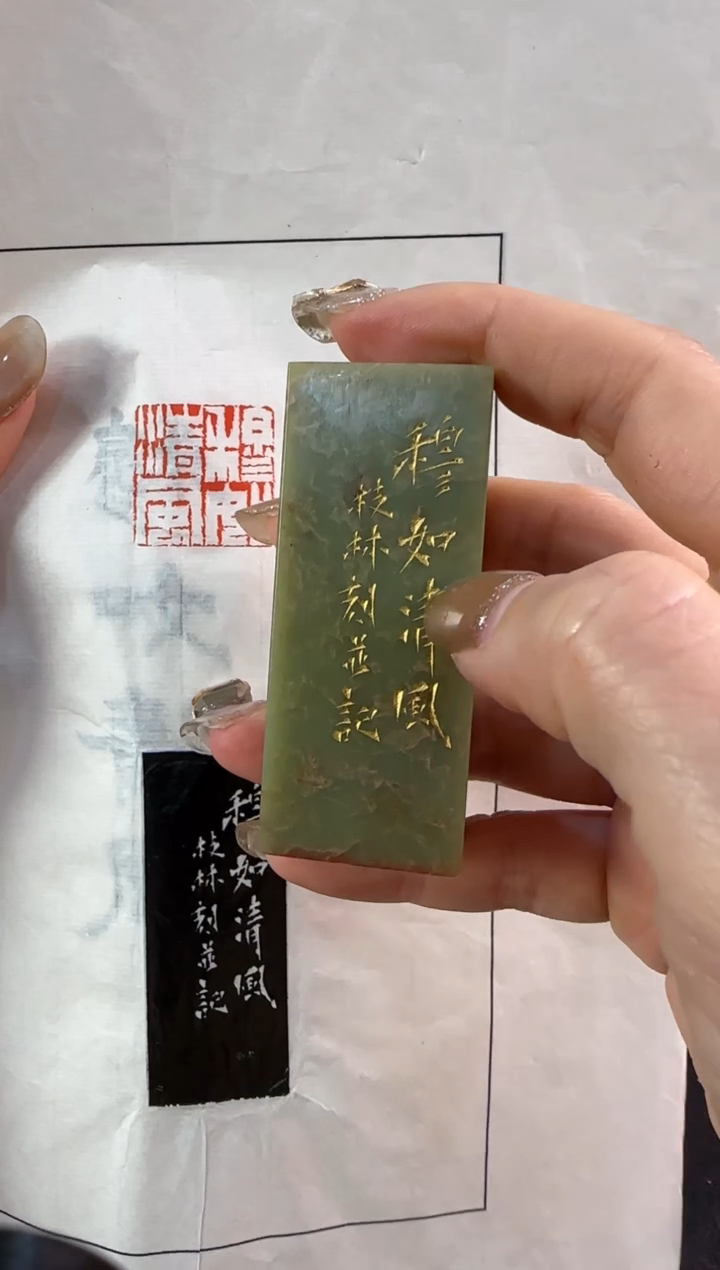 穆如
清風
穆如清風
枝林刻並記
穆如清風
枝林刻並記